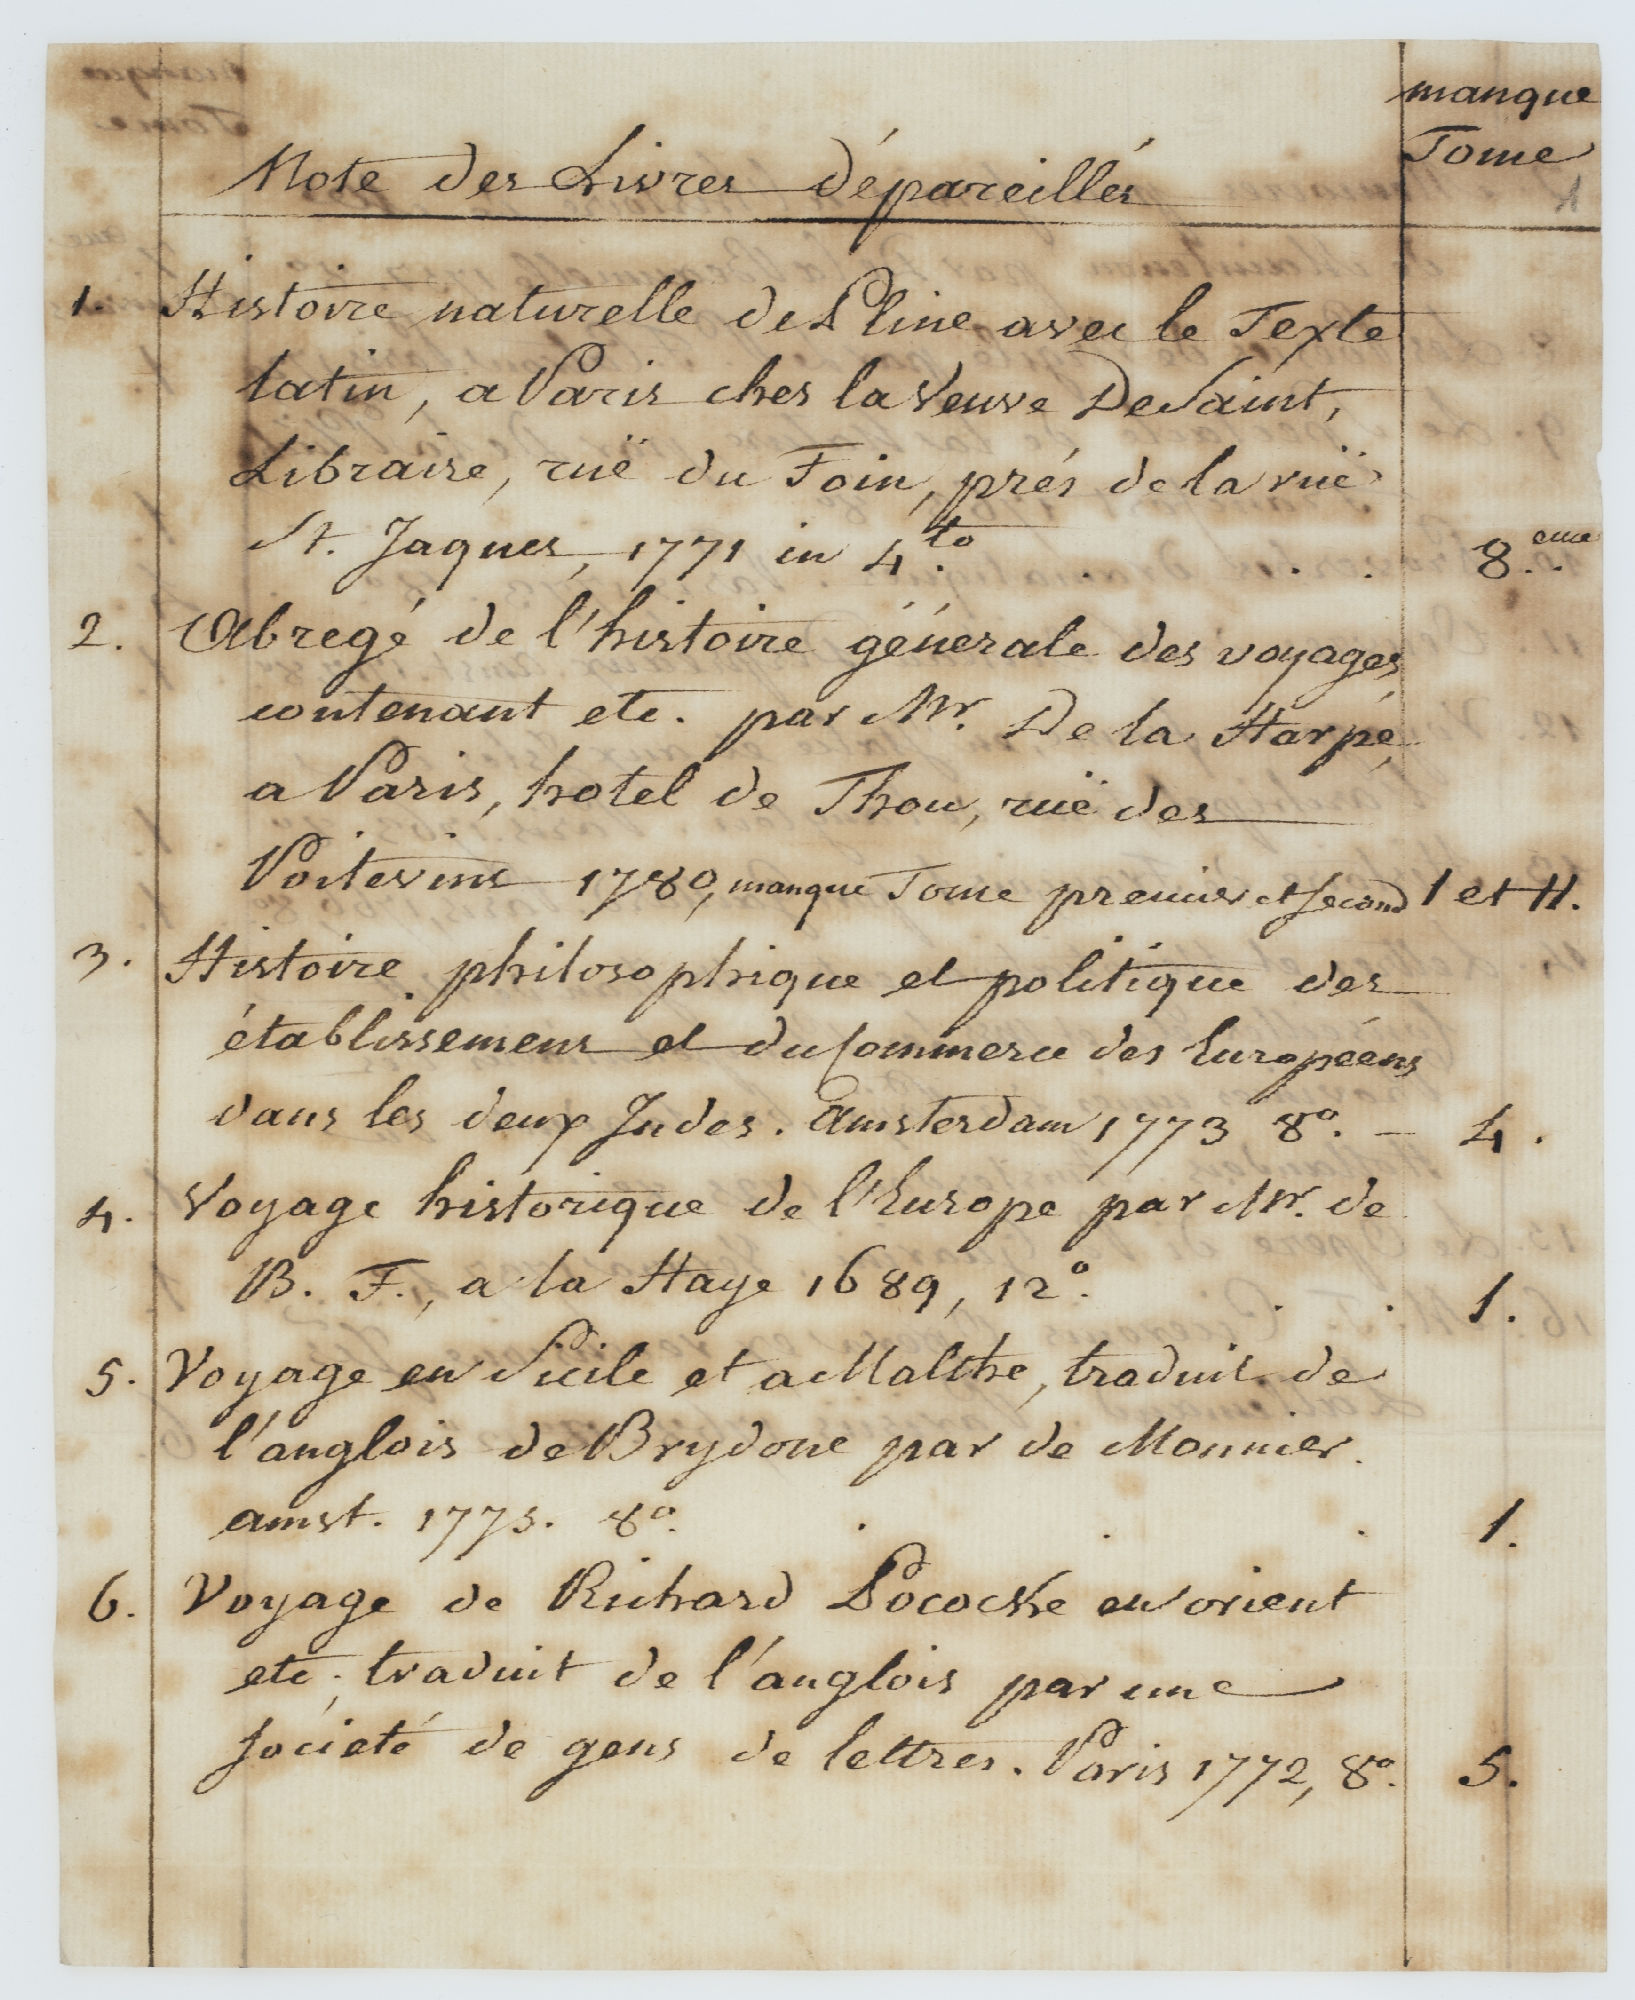 manque
Tome
1
Note des Livres dépareillés
1. Histoire naturelle de Pline avec le Texte
latin, a Paris ches la Veuve DeSaint,
Libraire, ruë du Foin, prés de la ruë
St. Jaques, 1771 in 4.to . . . 8.eme
2. Abregé de l'histoire génerale des voyages
contenant etc. par Mr. De la Harpé,
a Paris, hotel de Thou, ruë des
Poitevins 1780, manque Tome premier et second I et II.
3. Histoire philosophique et politique des
établissemens et du Commerce des Européens
dans les deux Indes. Amsterdam 1773 8o. – 4.
4. Voyage historique de l'Europe par Mr. de
B. F., a la Haye 1689, 12o. . . 1.
5. Voyage en Sicile et a Malthe, traduit de
l'anglois de Brydone par de Monnier.
amst. 1775. 8o. . . . 1.
6. Voyage de Richard Pococke en orient
etc. traduit de l'anglois par une
société de gens de lettres. Paris 1772, 8o. 5.